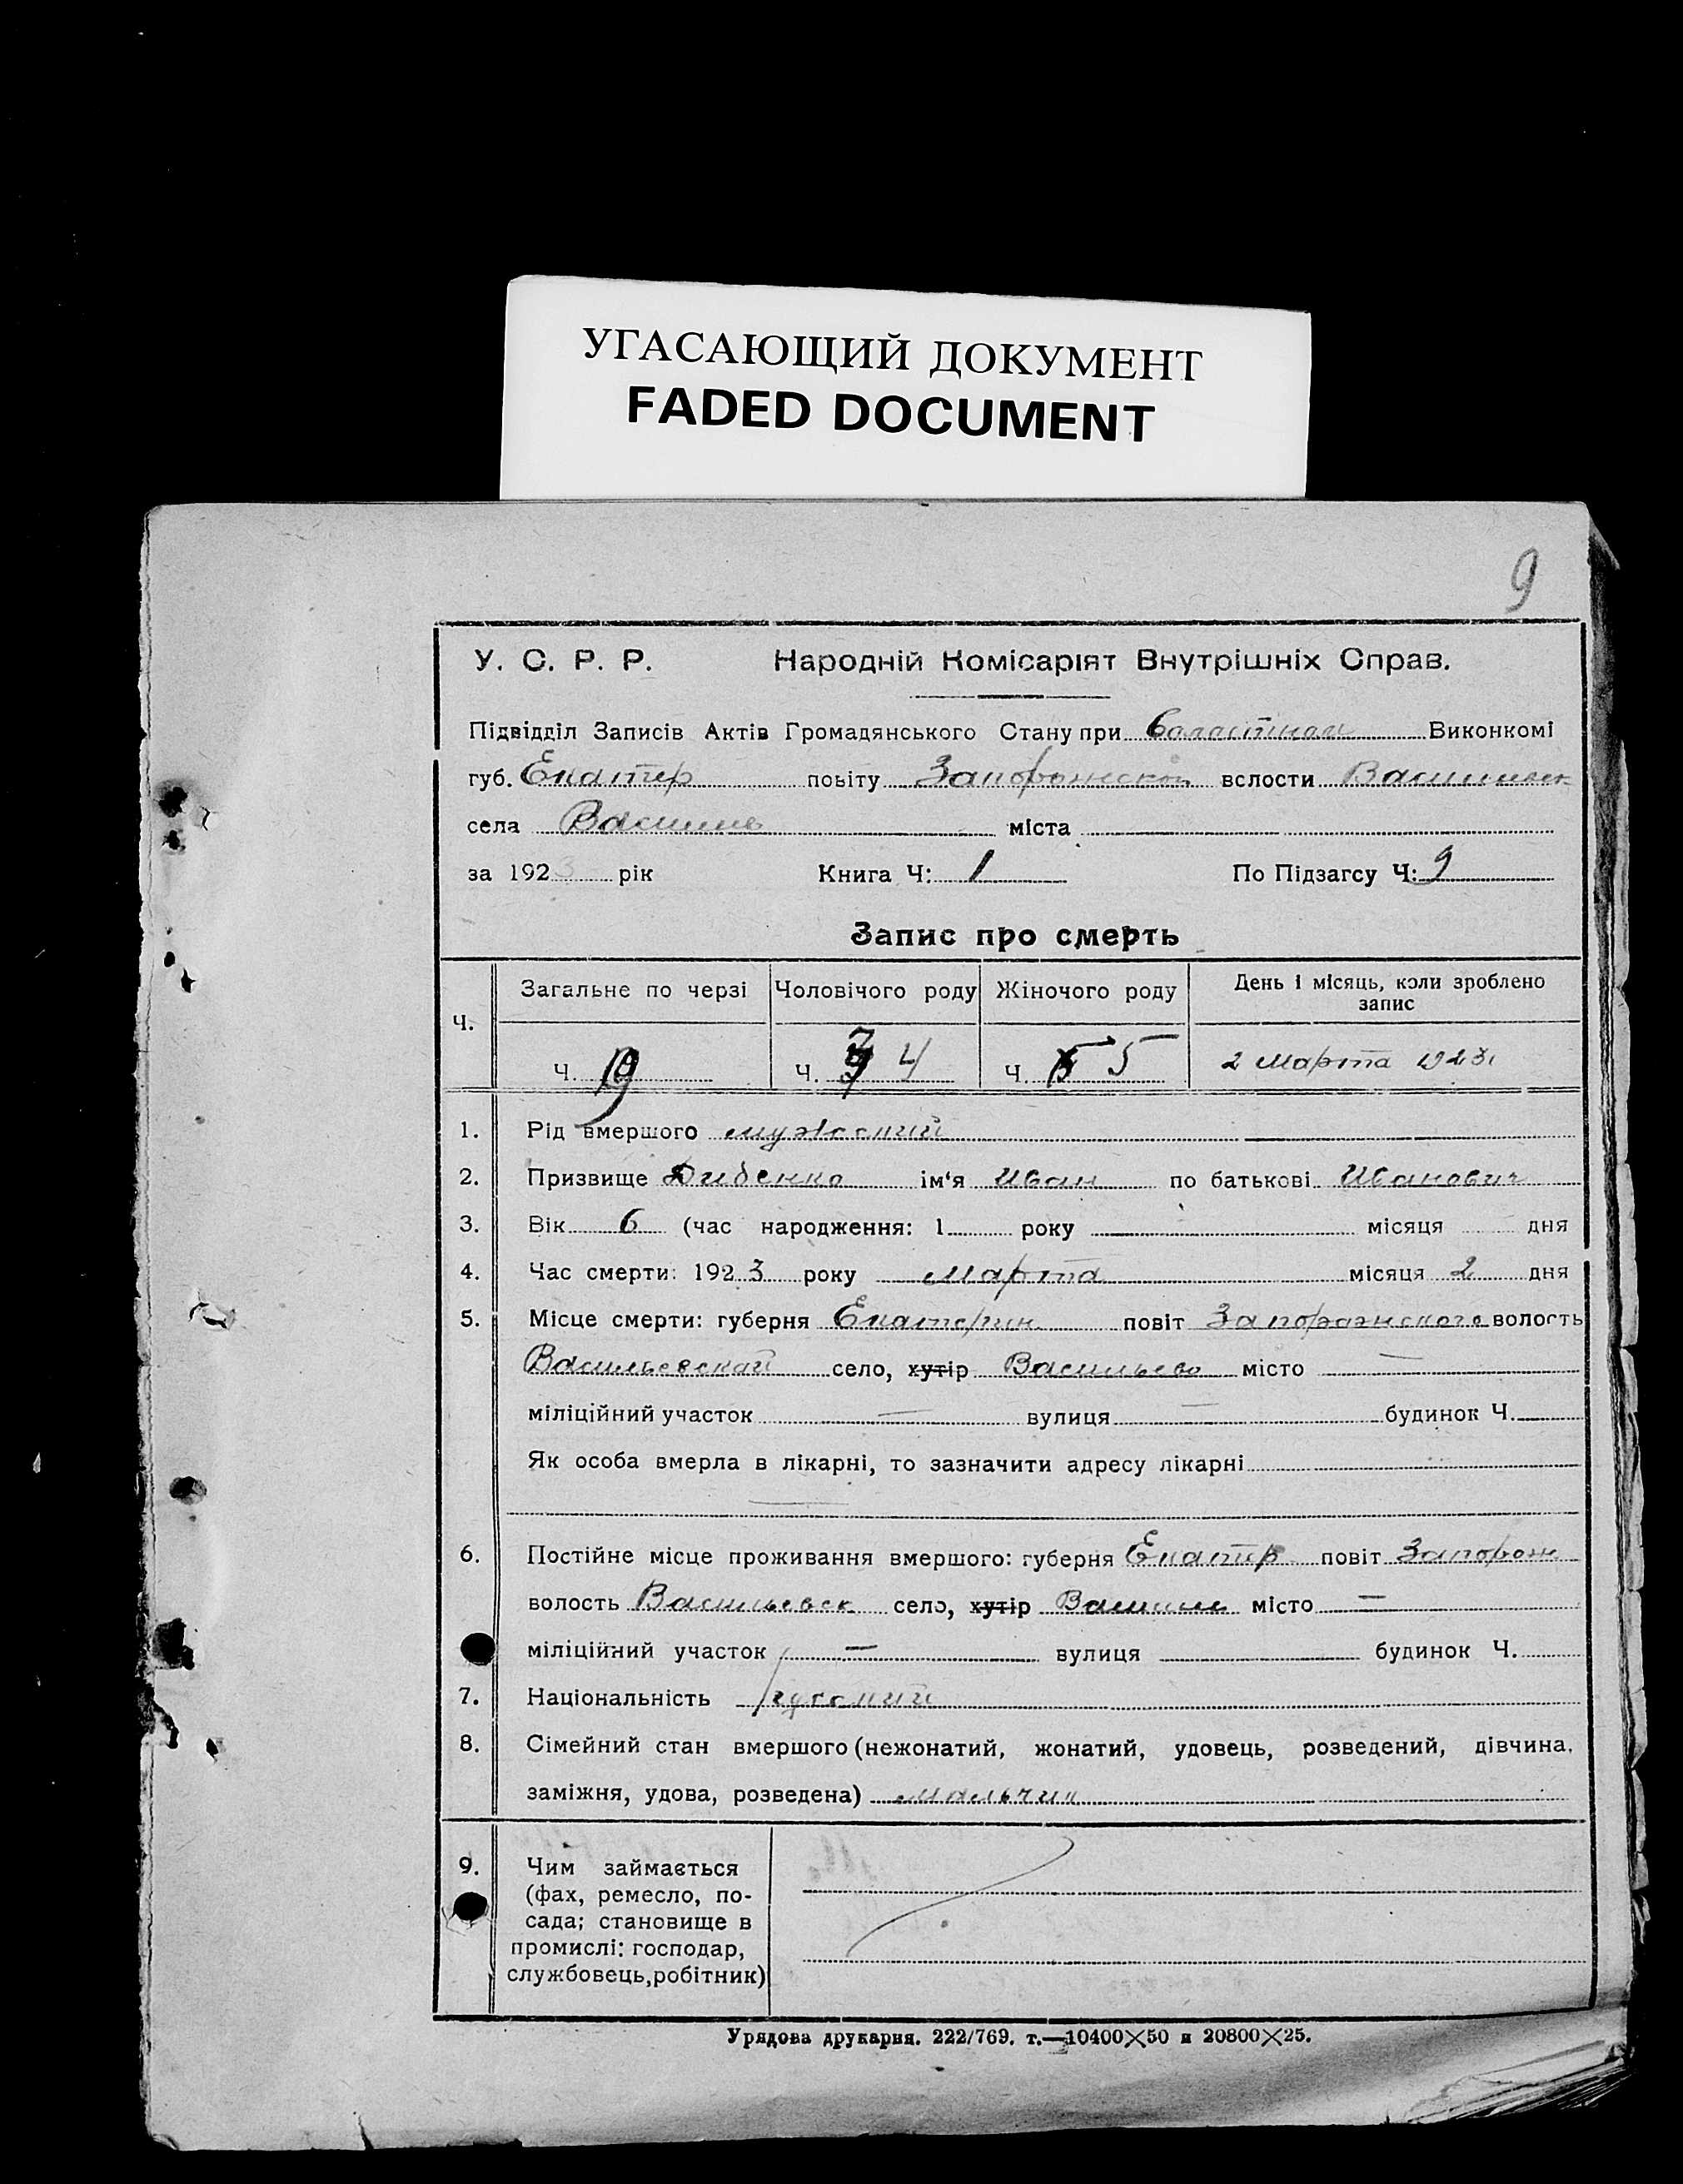 УГАСАЮЩИЙ ДОКУМЕНТ
FADED DOCUMENT
9
У. С. Р. Р. Народній Комісаріят Внутрішніх Справ.
Підвідділ Записів Актів Громадянського Стану при Виконкомі
губ. Екатер повіту Запорожской вслости
села міста
за 1923 рік Книга Ч: 1 По Підзагсу Ч: 9
Запис про смерть
Ч. Загальне по черзі Чоловічого роду Жіночого роду День і місяць, коли зроблено запис
Ч. 9 Ч. 4 Ч. 5 2 Марта 1923
1. Рід вмершого мужеский
2. Призвище Дибенко ім'я Иван по батькові Иванович
3. Вік 6 (час народження: 1 року місяця дня
4. Час смерти: 1923 року Марта місяця 2 дня
5. Місце смерти: губерня Екатерин повіт Запорожского волость
Васильевской село, хутір Васильево місто —
міліційний участок — вулиця — будинок Ч.
Як особа вмерла в лікарні, то зазначити адресу лікарні
—
6. Постійне місце проживання вмершого: губерня Екатер повіт Запорож
волость Васильевск село, хутір місто —
міліційний участок — вулиця будинок Ч.
7. Національність русский
8. Сімейний стан вмершого (нежонатий, жонатий, удовець, розведений, дівчина,
заміжня, удова, розведена) мальчик
9. Чим займається
(фах, ремесло, по-
сада; становище в
промислі: господар,
службовець,робітник)
Урядова друкарня. 222/769. т.—10400×50 и 20800×25.